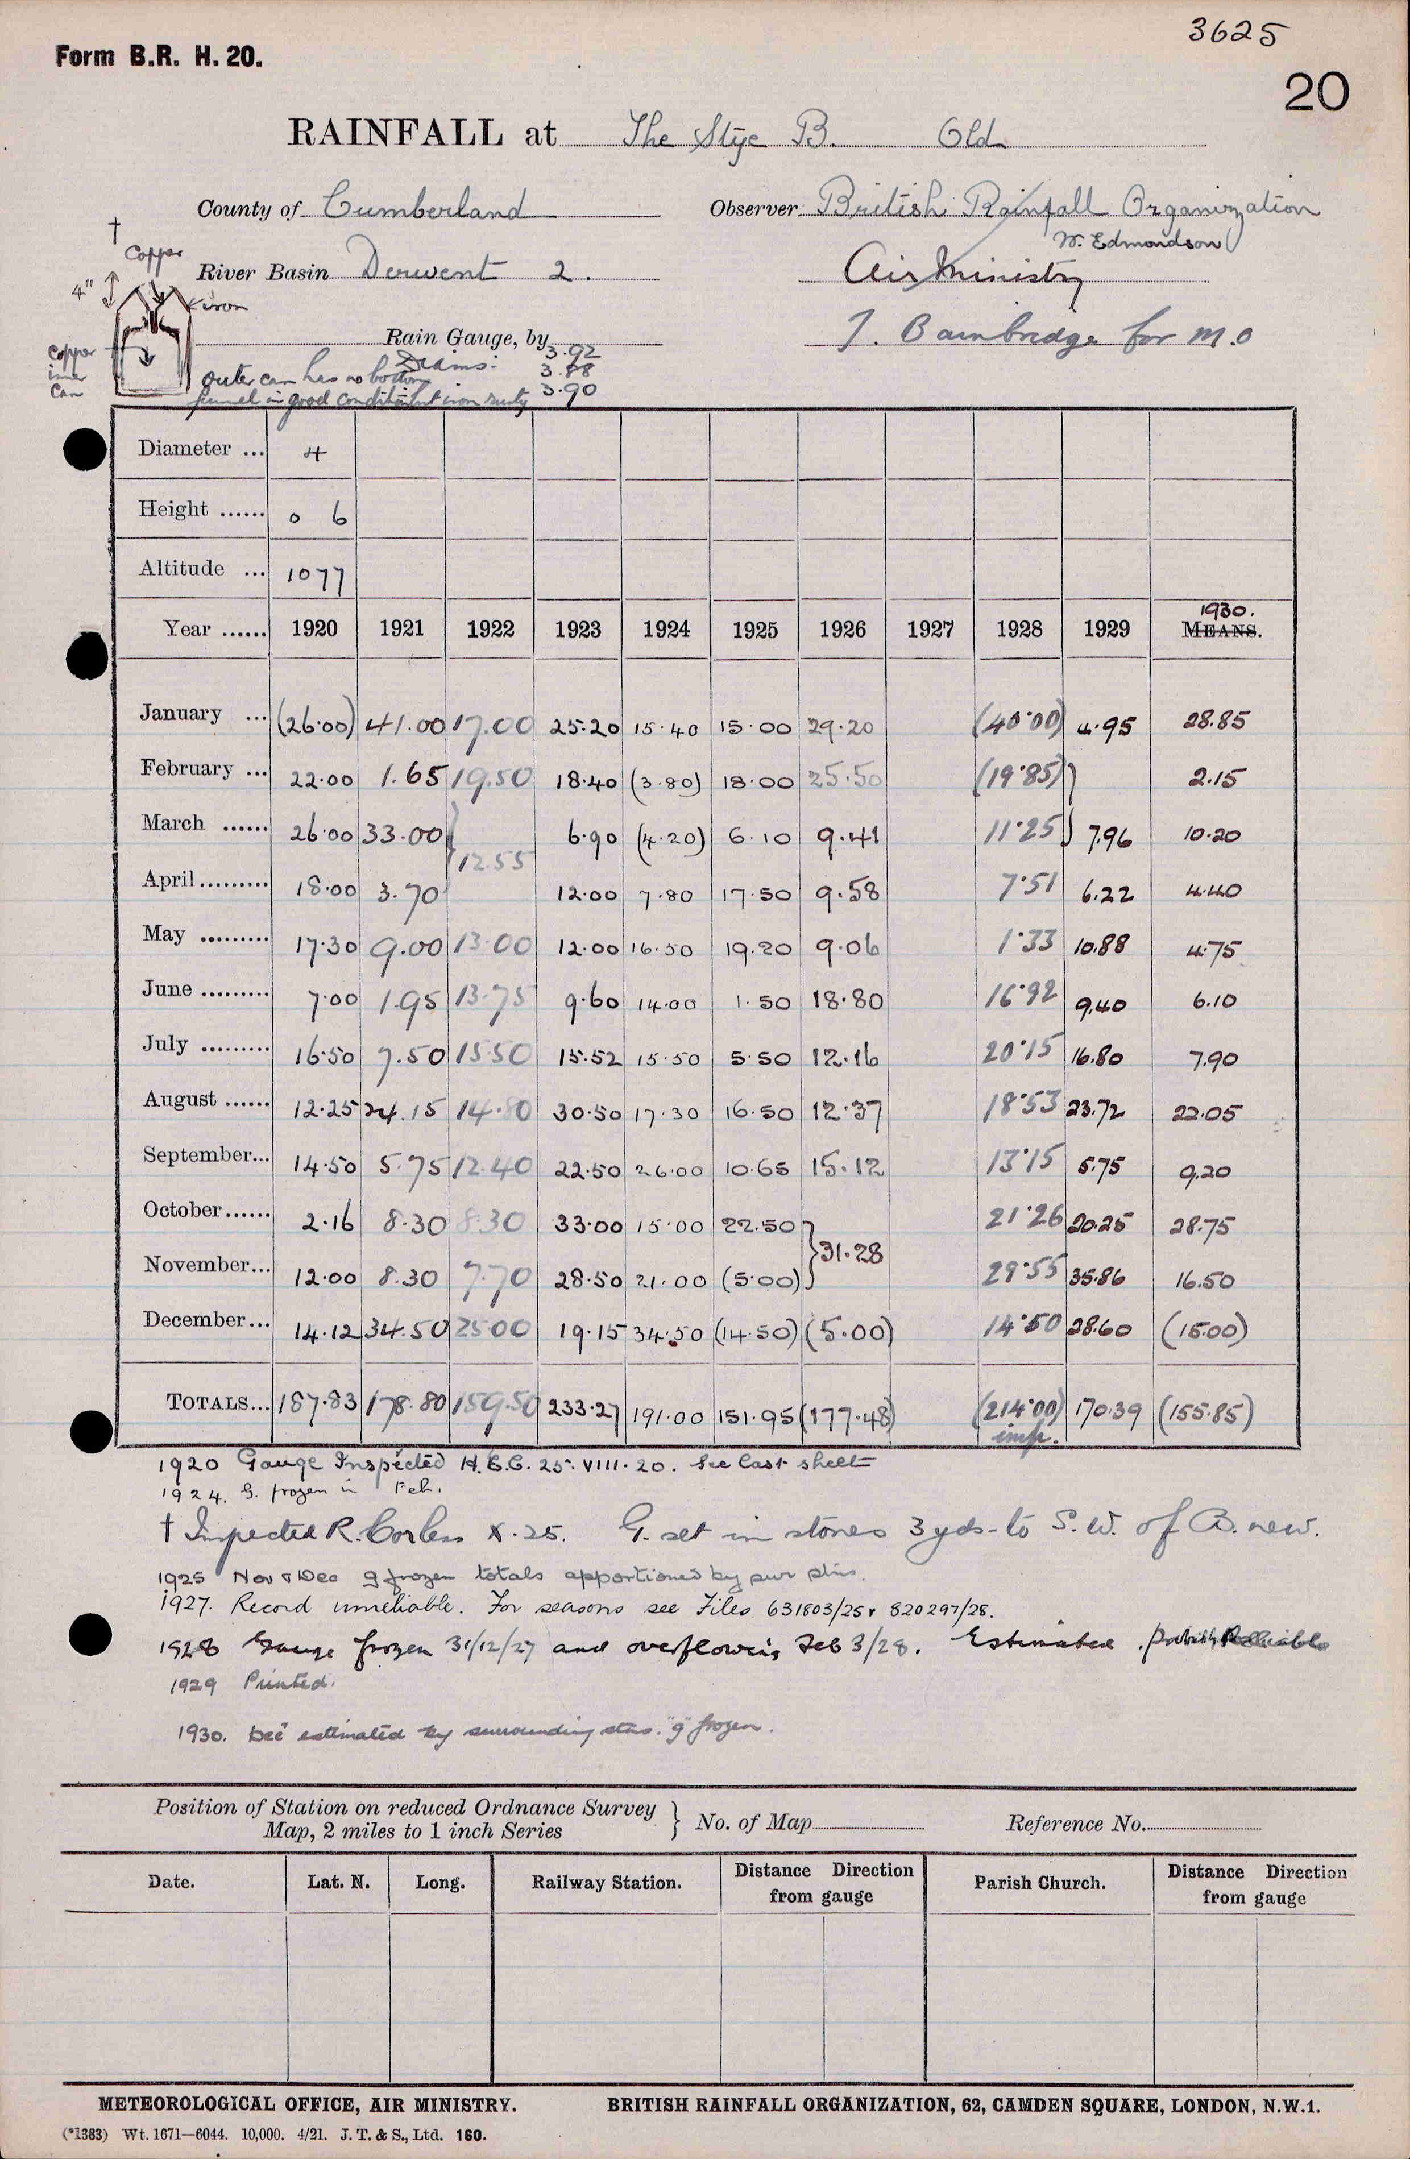 3625
Form B.R. H. 20.
20
RAINFALL at The Stye B. Old
County of Cumberland Observer British Rainfall Organization
W. Edmondson
†
Copper
4"
iron
River Basin Derwent 2. Air Ministry
Rain Gauge, by T. Bainbridge for M.O
Copper inner can
Diams: 3.92
3.88
3.90
outer can has no bottom
funnel in good condition but iron rusty
Diameter ... 4
Height ...... 0 6
Altitude ... 1077
1930.
Year ...... 1920 1921 1922 1923 1924 1925 1926 1927 1928 1929 MEANS.
January ... (26.00) 41.00 17.00 25.20 15.40 15.00 29.20 (40.00) 4.95 28.85
February ... 22.00 1.65 19.50 18.40 (3.80) 18.00 25.50 (19.85) } 2.15
March ...... 26.00 33.00 } 6.90 (4.20) 6.10 9.41 11.25 } 7.96 10.20
12.55
April ......... 18.00 3.70 12.00 7.80 17.50 9.58 7.51 6.22 4.40
May ......... 17.30 9.00 13.00 12.00 16.50 19.20 9.06 1.33 10.88 4.75
June ......... 7.00 1.95 13.75 9.60 14.00 1.50 18.80 16.92 9.40 6.10
July ......... 16.50 7.50 15.50 15.52 15.50 5.50 12.16 20.15 16.80 7.90
August ...... 12.25 24.15 14.80 30.50 17.30 16.50 12.37 18.53 23.72 22.05
September... 14.50 5.75 12.40 22.50 26.00 10.65 15.12 13.15 5.75 9.20
October...... 2.16 8.30 8.30 33.00 15.00 22.50 } 21.26 20.25 28.75
31.28
November... 12.00 8.30 7.70 28.50 21.00 (5.00) 29.55 35.86 16.50
December... 14.12 34.50 25.00 19.15 34.50 (14.50) (5.00) 14.50 28.60 (15.00)
TOTALS... 187.83 178.80 159.50 233.27 191.00 151.95 (177.48) (214.00) 170.39 (155.85)
imp.
1920 Gauge Inspected H.E.C. 25.VIII.20. See last sheet
1924. G. frozen in Feb.
† Inspected R. Corless X.25. G. set in stones 3 yds to S.W. of B. new.
1925 Nov & Dec g frozen totals apportioned by sur stns.
1927. Record unreliable. For seasons see Files 631803/25 & 820297/28.
1928 Gauge frozen 31/12/27 and overflowing Feb 3/28. Estimated.
1929 Printed.
1930. Dec estimated by surrounding stns. "g" frozen.
Position of Station on reduced Ordnance Survey
Map, 2 miles to 1 inch Series } No. of Map Reference No.
Date. Lat. N. Long. Railway Station. Distance Direction from gauge Parish Church. Distance Direction from gauge
METEOROLOGICAL OFFICE, AIR MINISTRY. BRITISH RAINFALL ORGANIZATION, 62, CAMDEN SQUARE, LONDON, N.W.1.
(*1383) Wt. 1671—6044. 10,000. 4/21. J. T. & S., Ltd. 160.